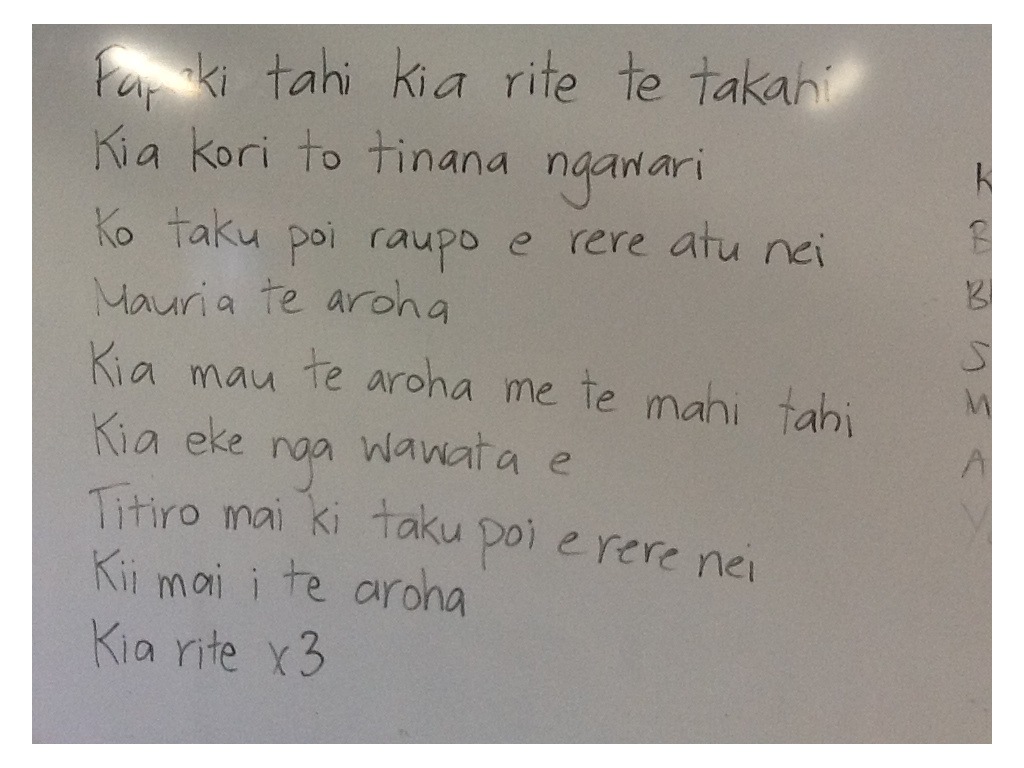 Papaki tahi kia rite te takahi
Kia kori to tinana ngawari
Ko taku poi raupo e rere atu nei
Mauria te aroha
Kia mau te aroha me te mahi tahi
Kia eke nga wawata e
Titiro mai ki taku poi e rere nei
Kii mai i te aroha
Kia rite x3
K
B
Bl
S
M
A